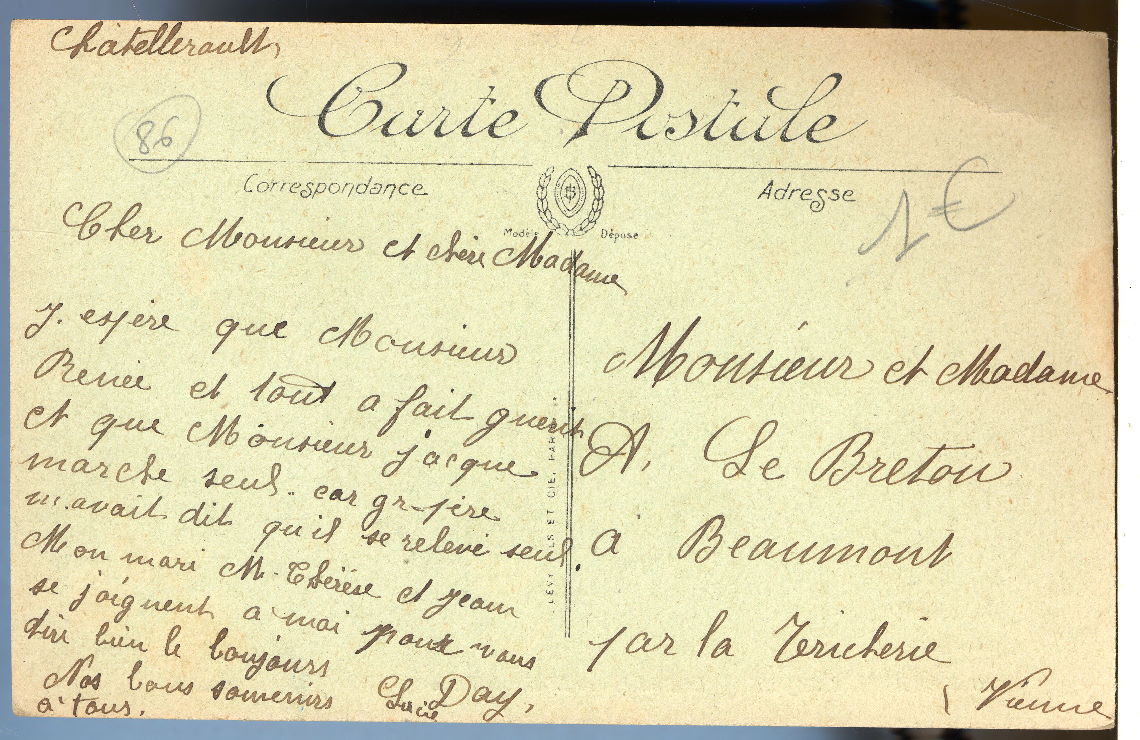 Chatellerault,
Carte Postale
86
Correspondance
Adresse
1€
Modèle Déposé
Cher Monsieur et chère Madame
J. espère que Monsieur
Renée et tout a fait guerit
et que Monsieur jacque
marche seul. car gr-père
m.avait dit qu'il se relevé seul.
Mon mari M. Thérèse et Jean
se joignent a moi pour vous
dire bien le bonjours
Nos bons souvenirs
à tous.
Lucie Day,
LÉVY FILS ET CIE, PARIS
Monsieur et Madame
A. Le Breton
à Beaumont
par la Tricherie
(Vienne